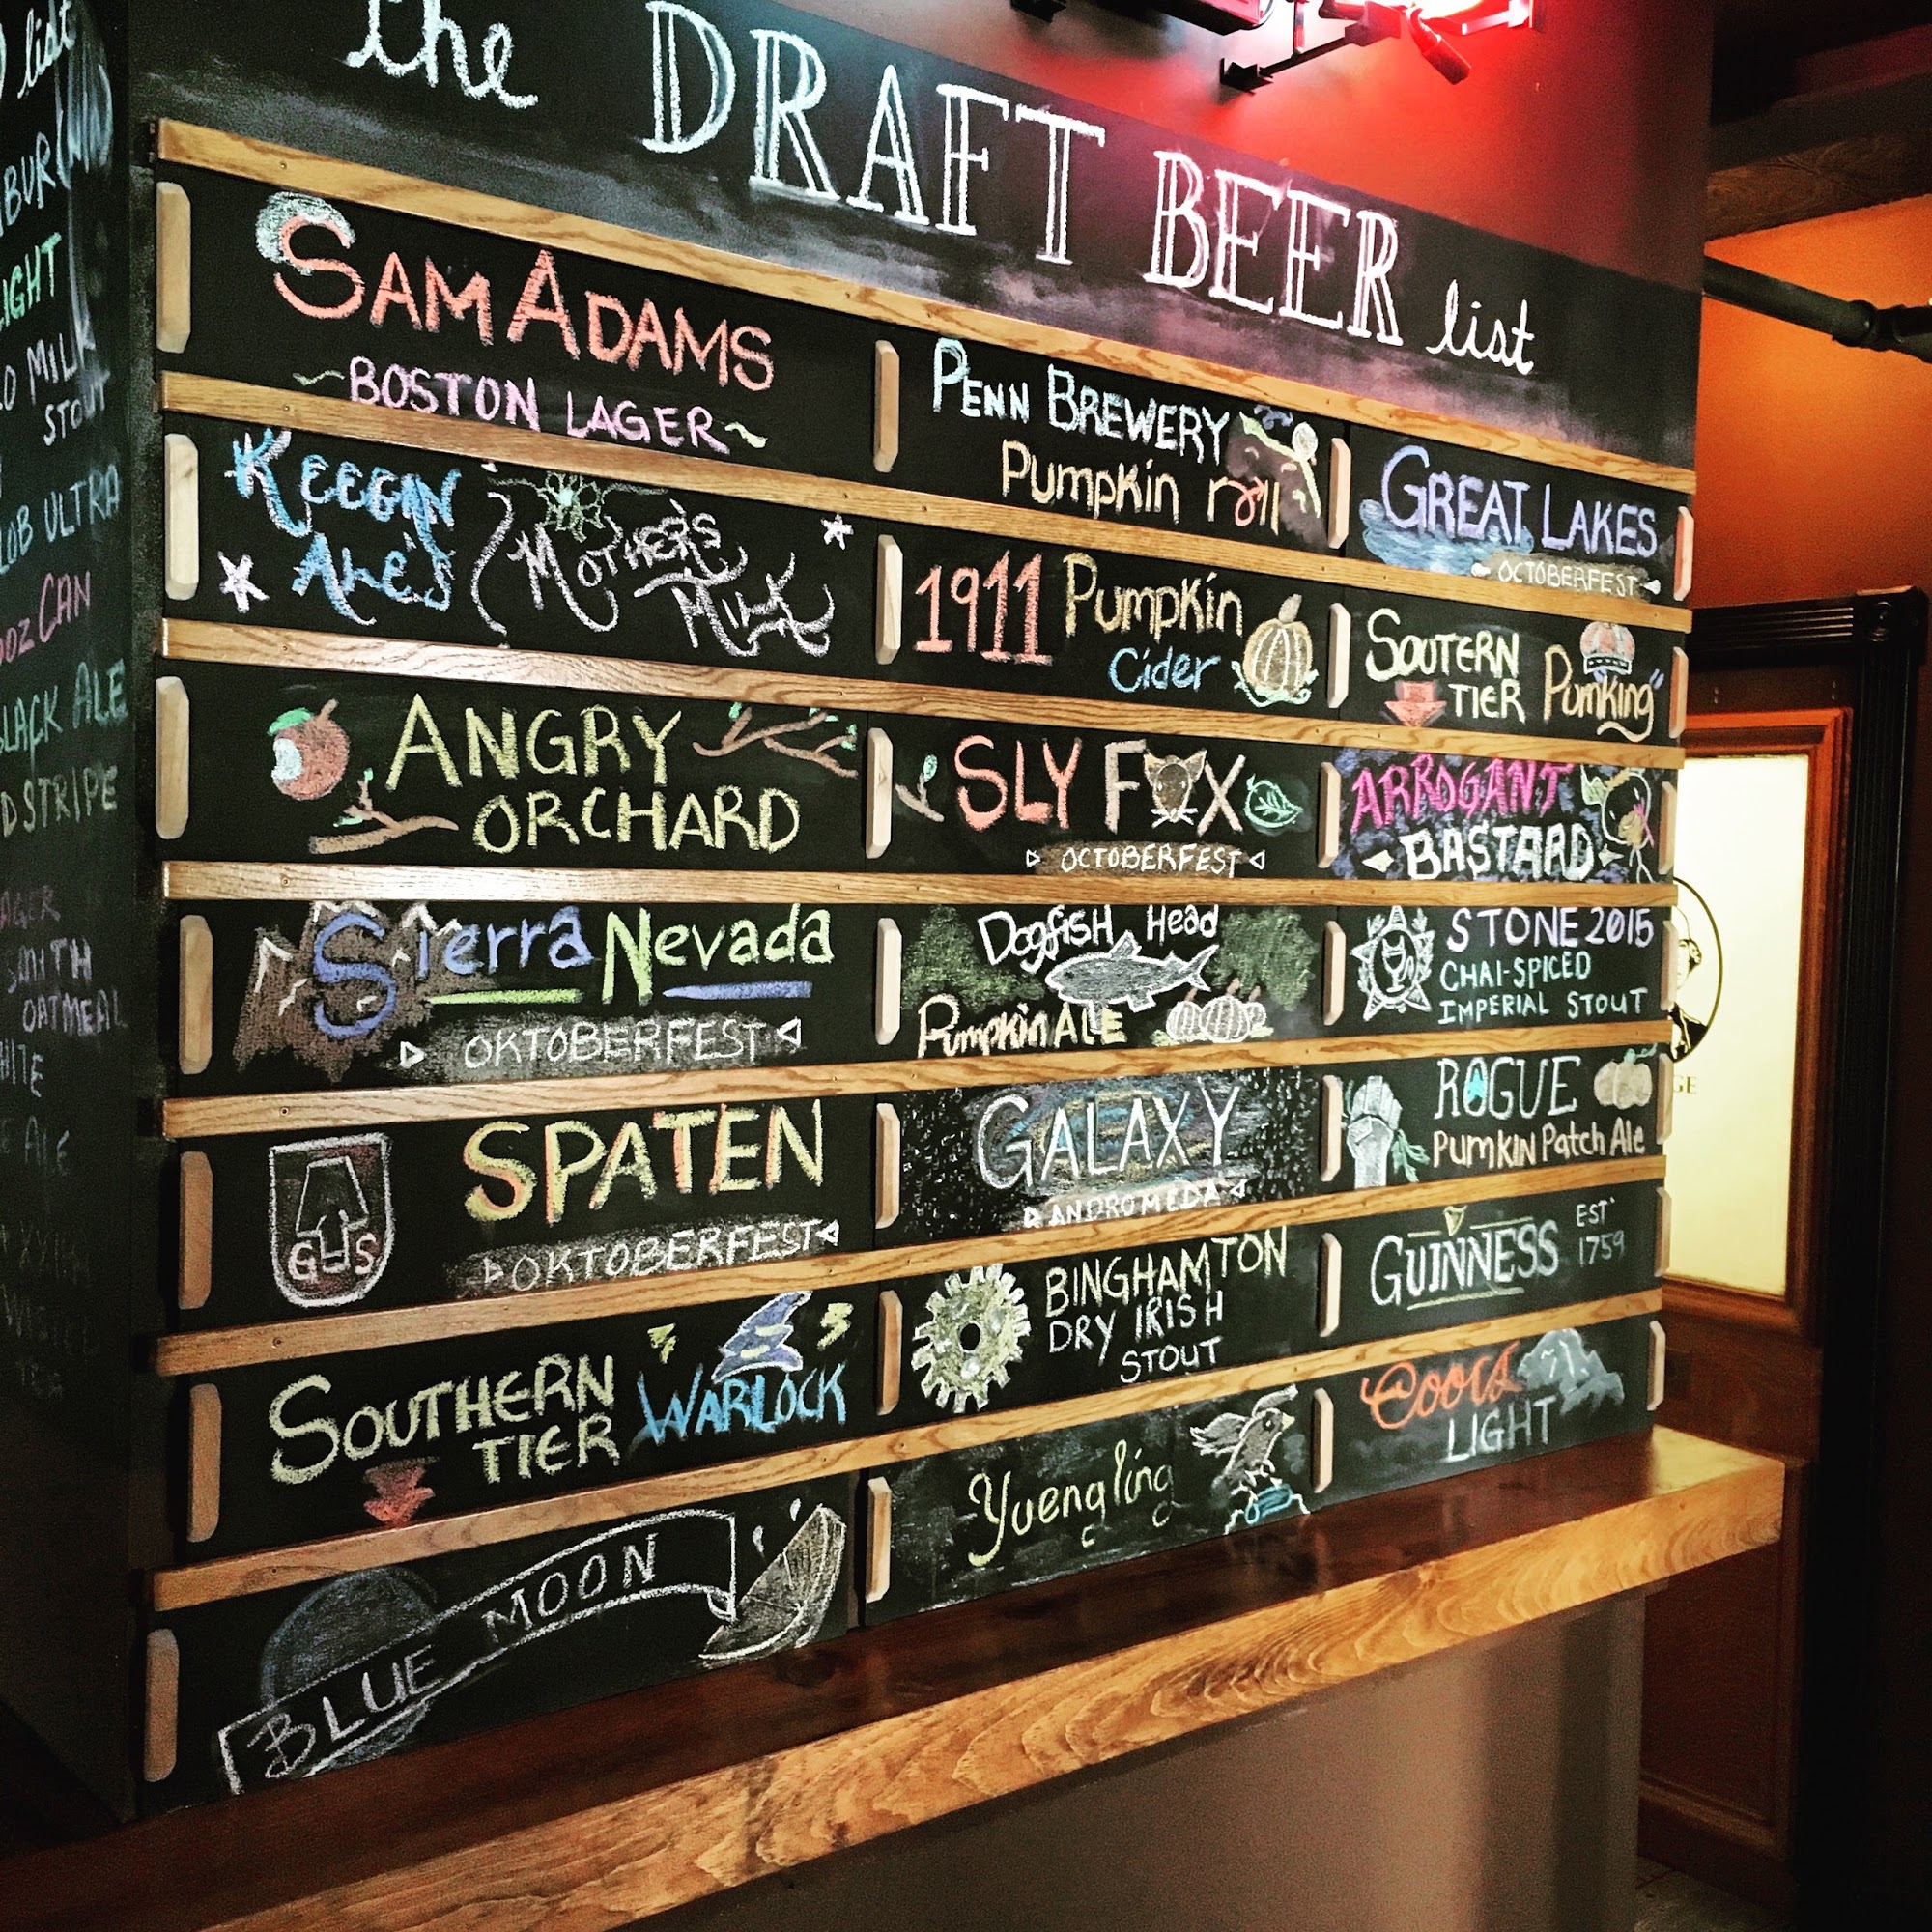 the DRAFT BEER list
SAM ADAMS
~BOSTON LAGER~
KEEGAN
ALE'S
MOTHER'S
MILK
ANGRY
ORCHARD
Sierra Nevada
OKTOBERFEST
GHS
SPATEN
OKTOBERFEST
SOUTHERN
TIER
WARLOCK
BLUE MOON
PENN BREWERY
Pumpkin roll
1911 Pumpkin
Cider
SLY FOX
OCTOBERFEST
Dogfish Head
Pumpkin ALE
GALAXY
ANDROMEDA
BINGHAMTON
DRY IRISH
STOUT
Yuengling
GREAT LAKES
OCTOBERFEST
SOUTERN
TIER
Pum"king"
ARROGANT
BASTARD
STONE 2015
CHAI-SPICED
IMPERIAL STOUT
ROGUE
PUMKIN Patch Ale
GUINNESS
EST'
1759
Coors
LIGHT
list
IGHT
MILK
STOUT
ULTRA
OZ CAN
BLACK ALE
STRIPE
AGER
SMITH
OATMEAL
ALE
GE